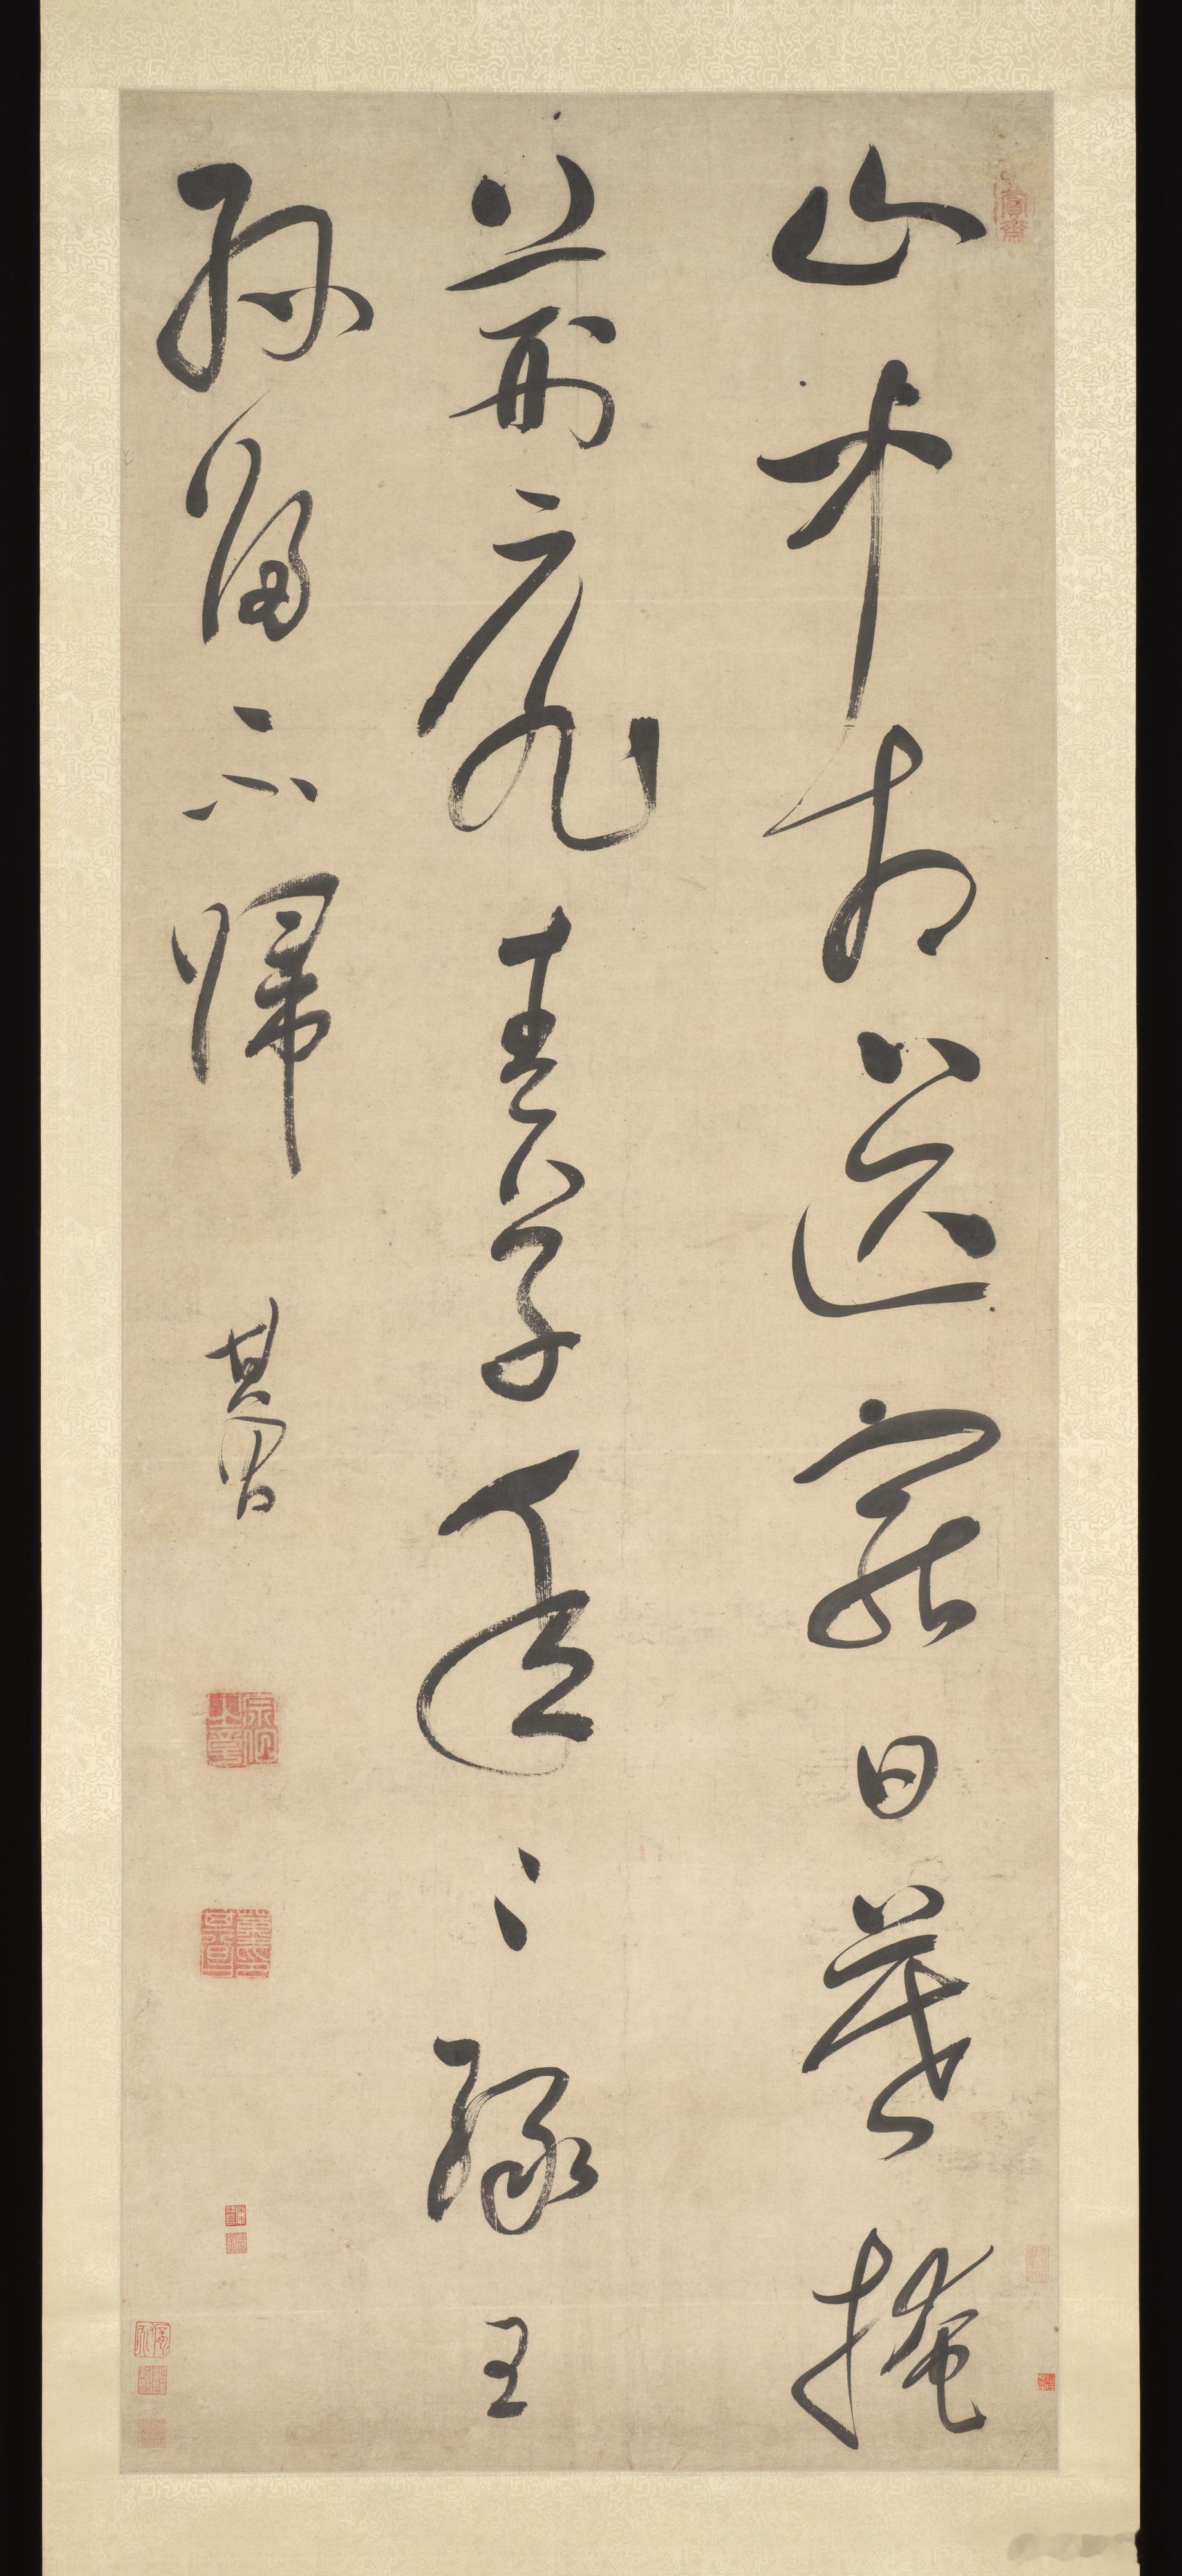 玄賞齋
山中相送罷日暮掩
荊扉春草年〻綠王
孫歸不歸
其昌